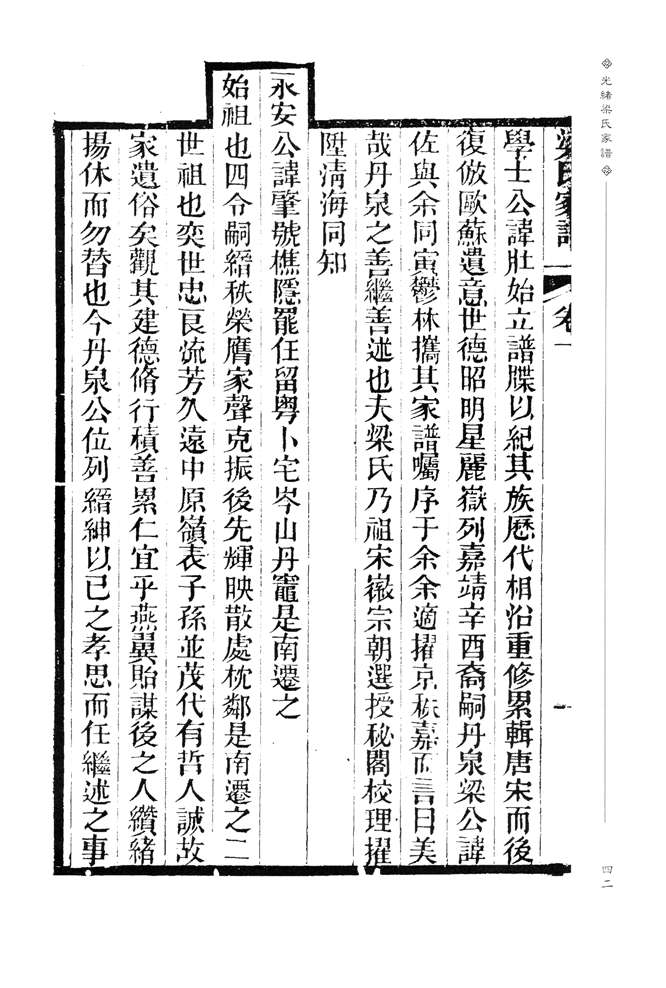 光緒梁氏家譜
四二
梁氏家譜 卷一
一
學士公諱肚始立譜牒以紀其族歷代相沿重修累輯唐宋而後
復倣歐蘇遺意世德昭明星麗嶽列嘉靖辛酉裔嗣丹泉梁公諱
佐與余同寅鬱林攜其家譜囑序于余余適擢京秩嘉而言曰美
哉丹泉之善繼善述也夫梁氏乃祖宋徽宗朝選授秘閣校理擢
陞清海同知
永安公諱肇號樵隱罷任留粵卜宅岑山丹竈是南遷之
始祖也四令嗣縉秩榮膺家聲克振後先輝映散處枕鄰是南遷之二
世祖也奕世忠良流芳久遠中原嶺表子孫並茂代有哲人誠故
家遺俗矣觀其建德脩行積善累仁宜乎燕翼貽謀後之人纘緒
揚休而勿替也今丹泉公位列縉紳以已之孝思而任繼述之事